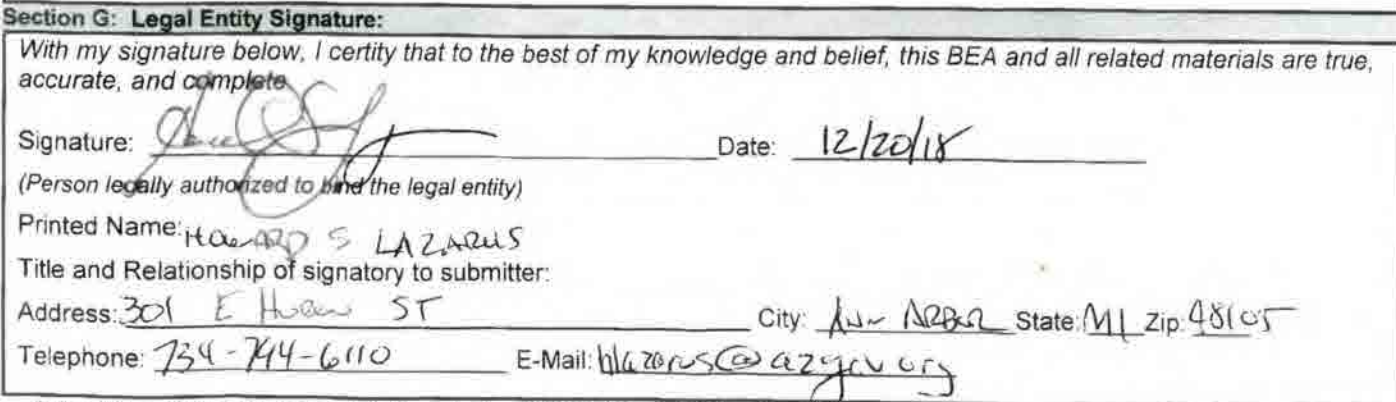 Section G: Legal Entity Signature:
With my signature below, I certity that to the best of my knowledge and belief, this BEA and all related materials are true,
accurate, and complete
Signature: Date: 12/20/18
(Person legally authorized to bind the legal entity)
Printed Name: HOWARD S LAZARUS
Title and Relationship of signatory to submitter:
Address: 301 E Huron ST City: ANN ARBOR State: MI Zip: 48105
Telephone: 734-794-6110 E-Mail: hlazarus@a2gov.org